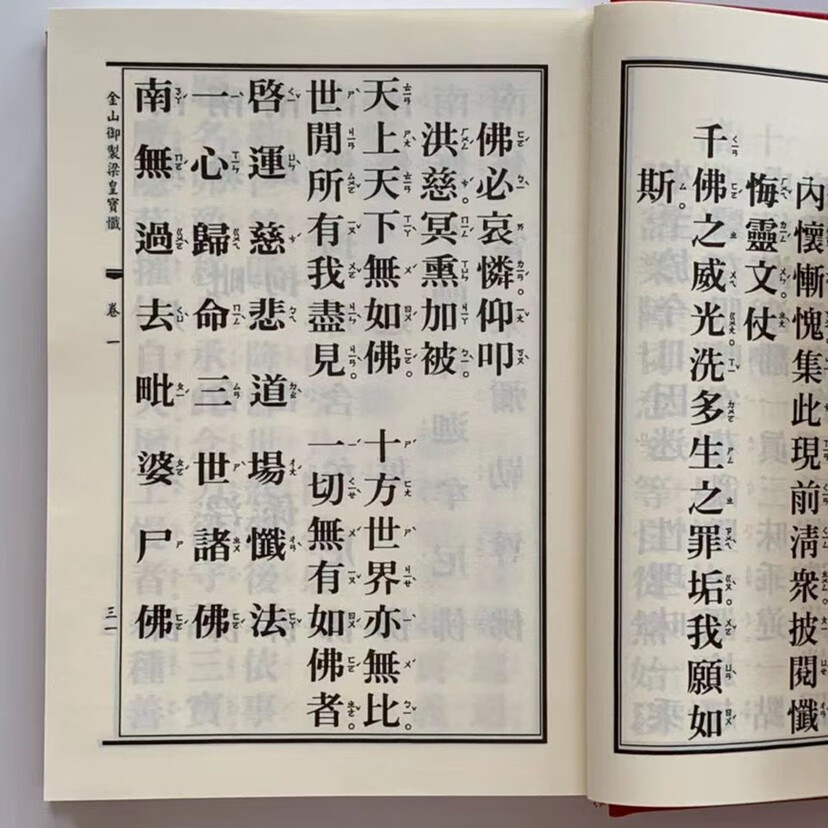 內懷慚愧集此現前淸衆披閱懺
悔靈文仗
千佛之威光洗多生之罪垢我願如
斯
佛必哀憐仰叩
洪慈冥熏加被
天上天下無如佛 十方世界亦無比
世閒所有我盡見 一切無有如佛者
啓運慈悲道場懺法
一心歸命三世諸佛
南無過去毗婆尸佛
金山御製梁皇寶懺 卷一 三一